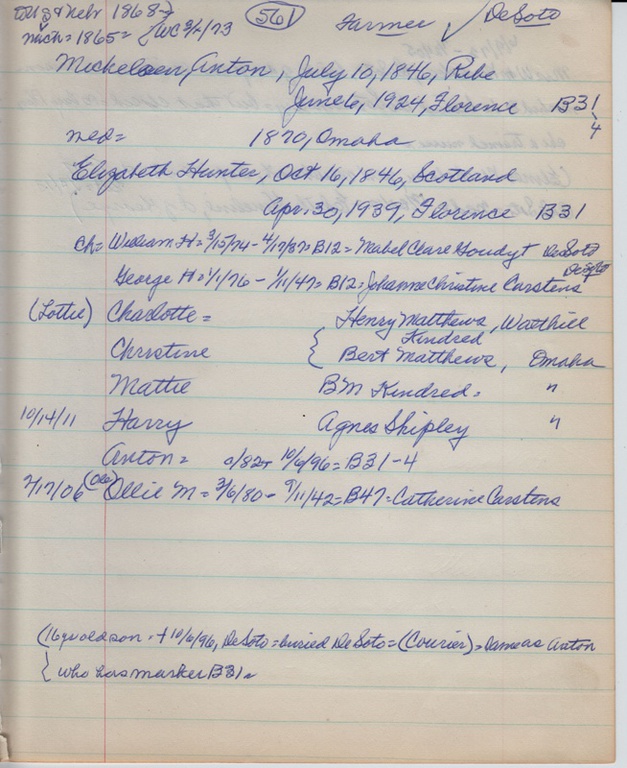 & Nebr 1868→ (561) Farmer ✓ DeSoto
Mich = 1865= WC 3/2/73
Mickelsen, Anton, July 10, 1846, Ribe
June 6, 1924, Florence B31
4
med= 1870, Omaha
Elizabeth Hunter, Oct 16, 1846, Scotland
Apr. 30, 1939, Florence B31
ch= William. H= 3/15/74 - 4/17/37= B12= Mabel Clare Goudyt DeSoto
DeSoto
George H= 1/1/76 - 1/11/47= B12= Johanne Christine Carstens
(Lottie) Charlotte = Henry Matthews, Watthill
Kindred
Christine { Bert Matthews, Omaha
Mattie BM Kindred = "
10/14/11 Harry Agnes Shipley "
Anton = c/82+ 10/6/96= B31-4
2/17/06 (Ole) Ollie M = 3/6/80 - 9/11/42= B47= Catherine Carstens
(16 yr old son + 10/6/96, DeSoto = buried DeSoto = (Courier) = same as Anton
{ who has marker B31=